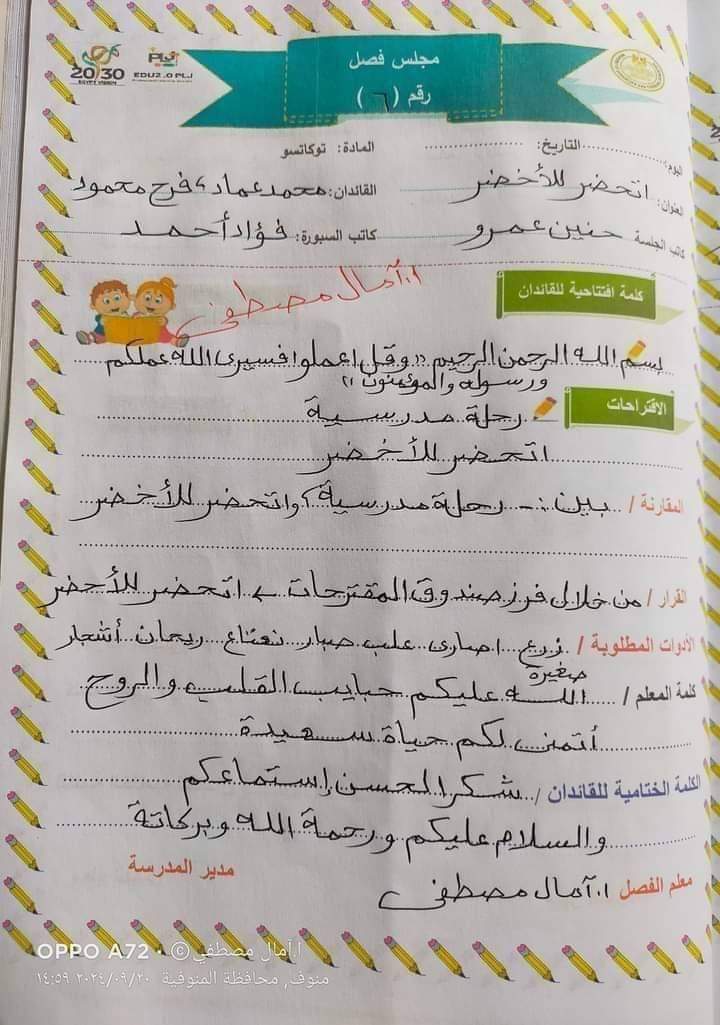 2030
EGYPT VISION
EDU2.0 PLJ
مجلس فصل
رقم (٦)
اليوم: التاريخ: المادة: توكاتسو
العنوان: اتحضر للأخضر القائدان: محمد عماد، فرح محمود
كاتب الجلسة حنين عمرو كاتب السبورة: فؤاد أحمد
كلمة افتتاحية للقائدان
أ.آمال مصطفى
بسم الله الرحمن الرحيم "وقل اعملوا فسيرى الله عملكم
ورسوله والمؤمنون"
الاقتراحات
رحلة مدرسية
اتحضر للأخضر
المقارنة / بين :- رحلة مدرسية، واتحضر للأخضر
القرار / من خلال فرز صندوق المقترحات ← اتحضر للأخضر
الأدوات المطلوبة / زرع اصارى علب صبار نعناع ريحان أشجار
صغيرة
كلمة المعلم / الله عليكم حبايب القلب والروح
أتمنى لكم حياة سعيدة
الكلمة الختامية للقائدان / شكرا لحسن إستماعكم
والسلام عليكم ورحمة الله وبركاتة
مدير المدرسة
معلم الفصل أ.آمال مصطفى
OPPO A72 · © ا.آمال مصطفي
منوف, محافظة المنوفية ٢٠٢٤/٠٩/٢٠ ١٤:٥٩